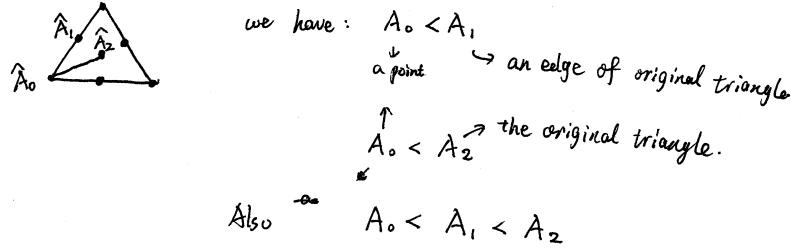 Â₁
Â₂
Â₀
we have: A₀ < A₁
↓
a point
→ an edge of original triangle
↑
A₀ < A₂ → the original triangle.
Also A₀ < A₁ < A₂